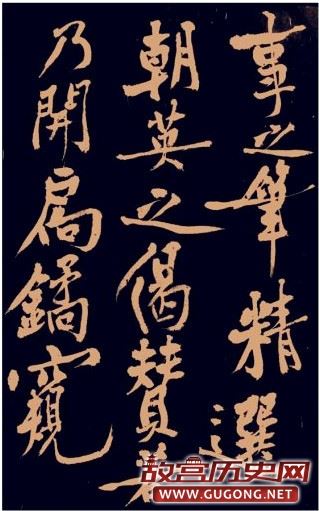 事之筆精選
朝英之偈贊
乃開扃鐍窺
故宫历史网
WWW.GUGONG.NET